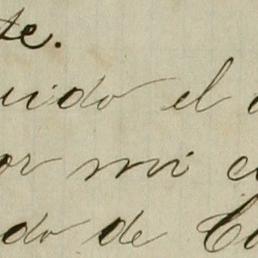 te.
uido el
or mi c
do de Ca